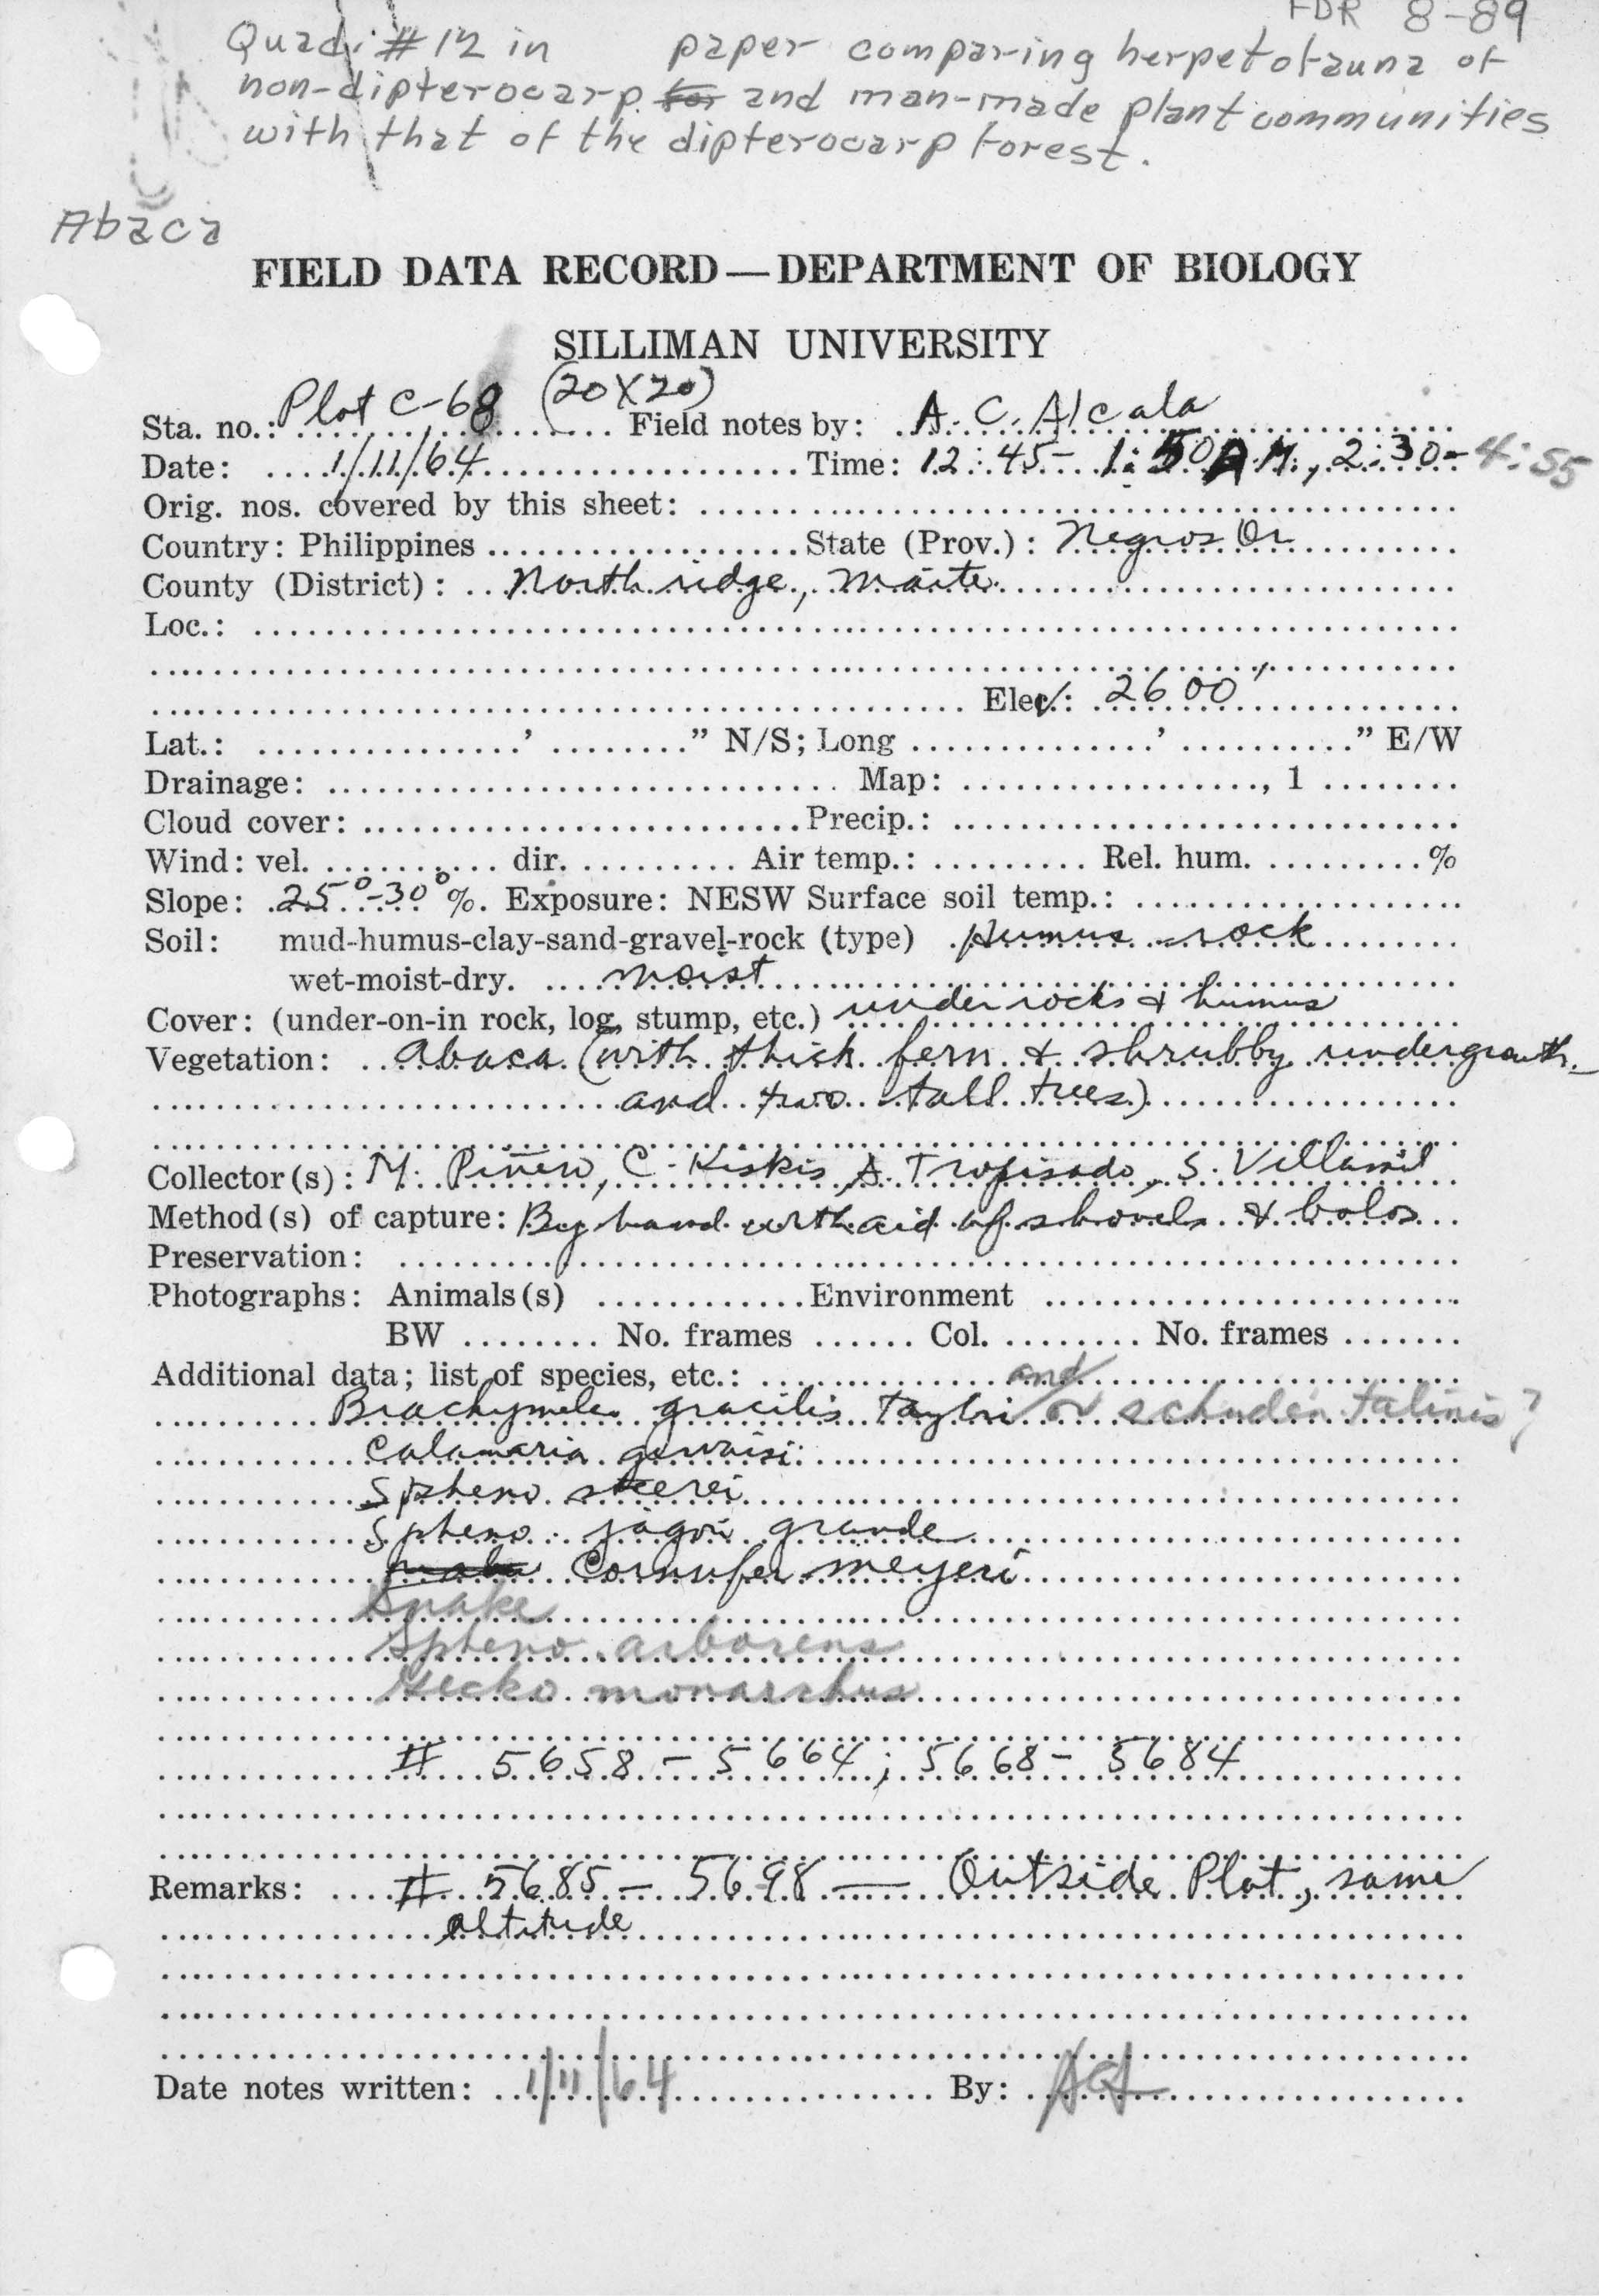 FDR 8-89
Quad. #12 in paper comparing herpetofauna of
non-dipterocarp for and man-made plant communities
with that of the dipterocarp forest.
Abaca
FIELD DATA RECORD — DEPARTMENT OF BIOLOGY
SILLIMAN UNIVERSITY
Sta. no.: Plot C-68 (20 X 20) Field notes by: A. C. Alcala
Date: 1/11/64 Time: 12:45 - 1:50 AM, 2:30 - 4:55
Orig. nos. covered by this sheet:
Country: Philippines State (Prov.): Negros Or
County (District): North ridge, Maite
Loc.:
Elev: 2600'
Lat.: ' " N/S; Long ' " E/W
Drainage: Map: , 1
Cloud cover: Precip.:
Wind: vel. dir. Air temp.: Rel. hum. %
Slope: 25°-30° %. Exposure: NESW Surface soil temp.:
Soil: mud-humus-clay-sand-gravel-rock (type) Humus - rock
wet-moist-dry. moist
Cover: (under-on-in rock, log, stump, etc.) under rocks & humus
Vegetation: Abaca (with thick fern & shrubby undergrowth
and two tall trees)
Collector(s): M. Piñero, C. Kiskis, A. Tropisado, S. Villamil
Method(s) of capture: By hand with aid of shovels & bolos
Preservation:
Photographs: Animals(s) Environment
BW No. frames Col. No. frames
Additional data; list of species, etc.: and
Brachymeles gracilis taylori or schadenbergi talinis?
Calamaria gervaisi
Spheno steerei
Spheno. jagori grande
Cornufer meyeri
Snake
Spheno arborens
Gecko monarchus
# 5658 - 5664; 5668 - 5684
Remarks: # 5685 - 5698 — Outside Plot, same
altitude
Date notes written: 1/11/64 By: ACA